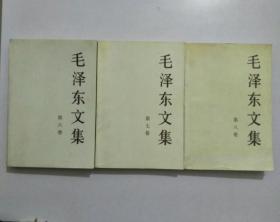 毛泽东文集
第六卷
毛泽东文集
第七卷
毛泽东文集
第八卷